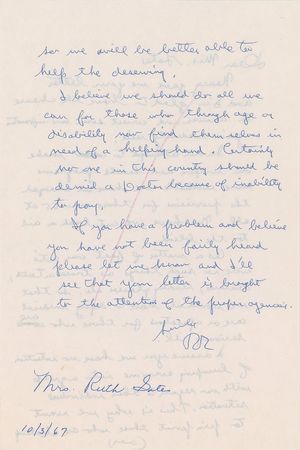 so we will be better able to
help the deserving.
I believe we should do all we
can for those who through age or
disability now find themselves in
need of a helping hand. Certainly
no one in this country should be
denied a Doctor because of inability
to pay.
If you have a problem and believe
you have not been fairly heard
please let me know and I'll
see that your letter is brought
to the attention of the proper agencies.
Sincerely
RR
Mrs. Ruth
10/3/67